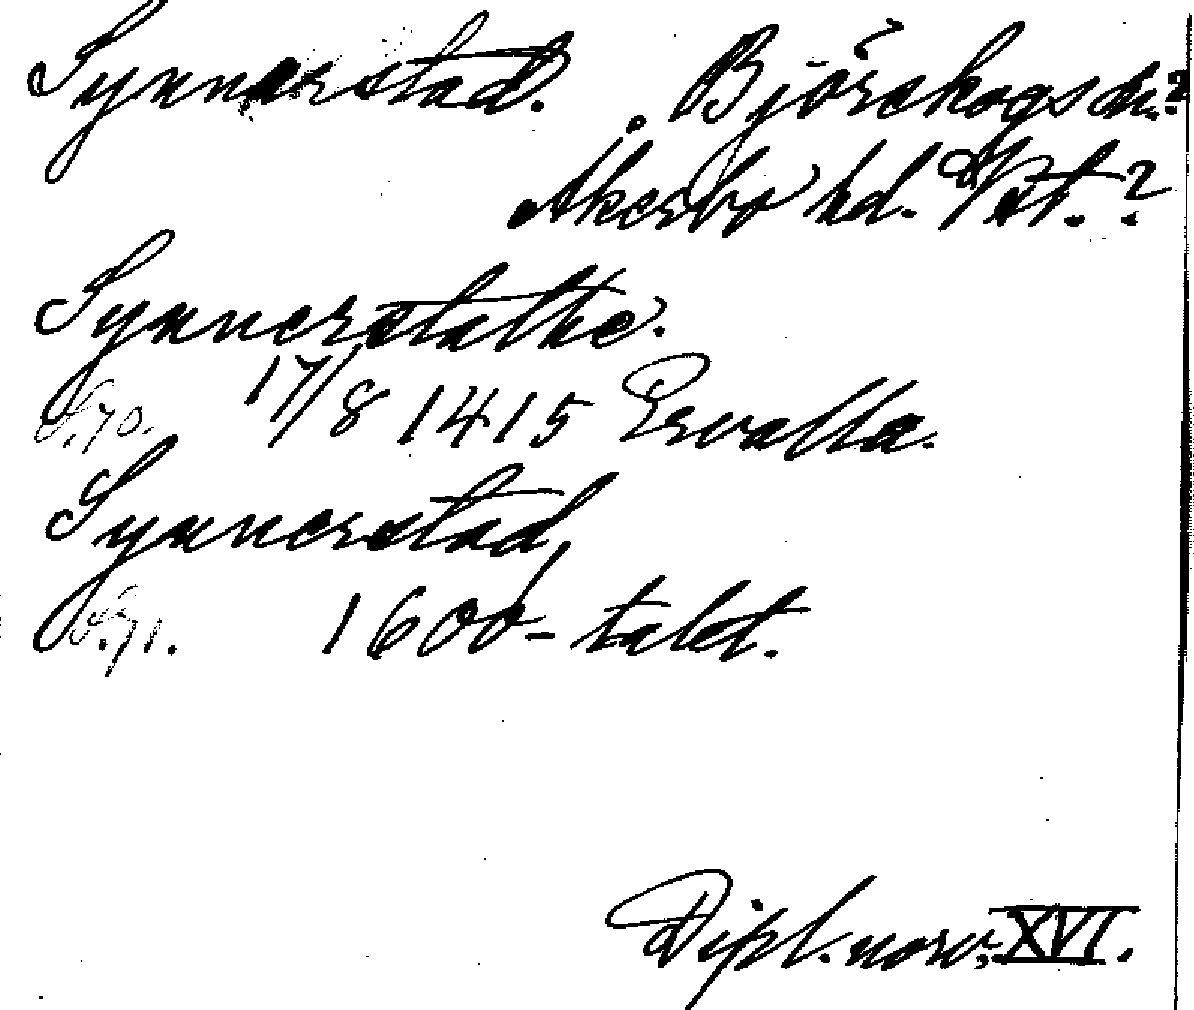 Synnerstad. Björskogs sn.?
Åkerbo hd. Vstm.?
Synnerstathe.
S. 70. 17/8 1415 Ervalla.
Synnerstad,
S. 71. 1600-talet.
Dipl. norv. XVI.